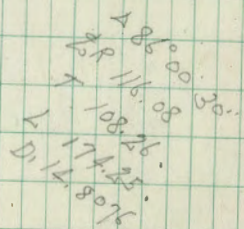 Δ 86° 00' 30"
∠R 116.08
T 108.26.
L 174.25.
D. 14.8076